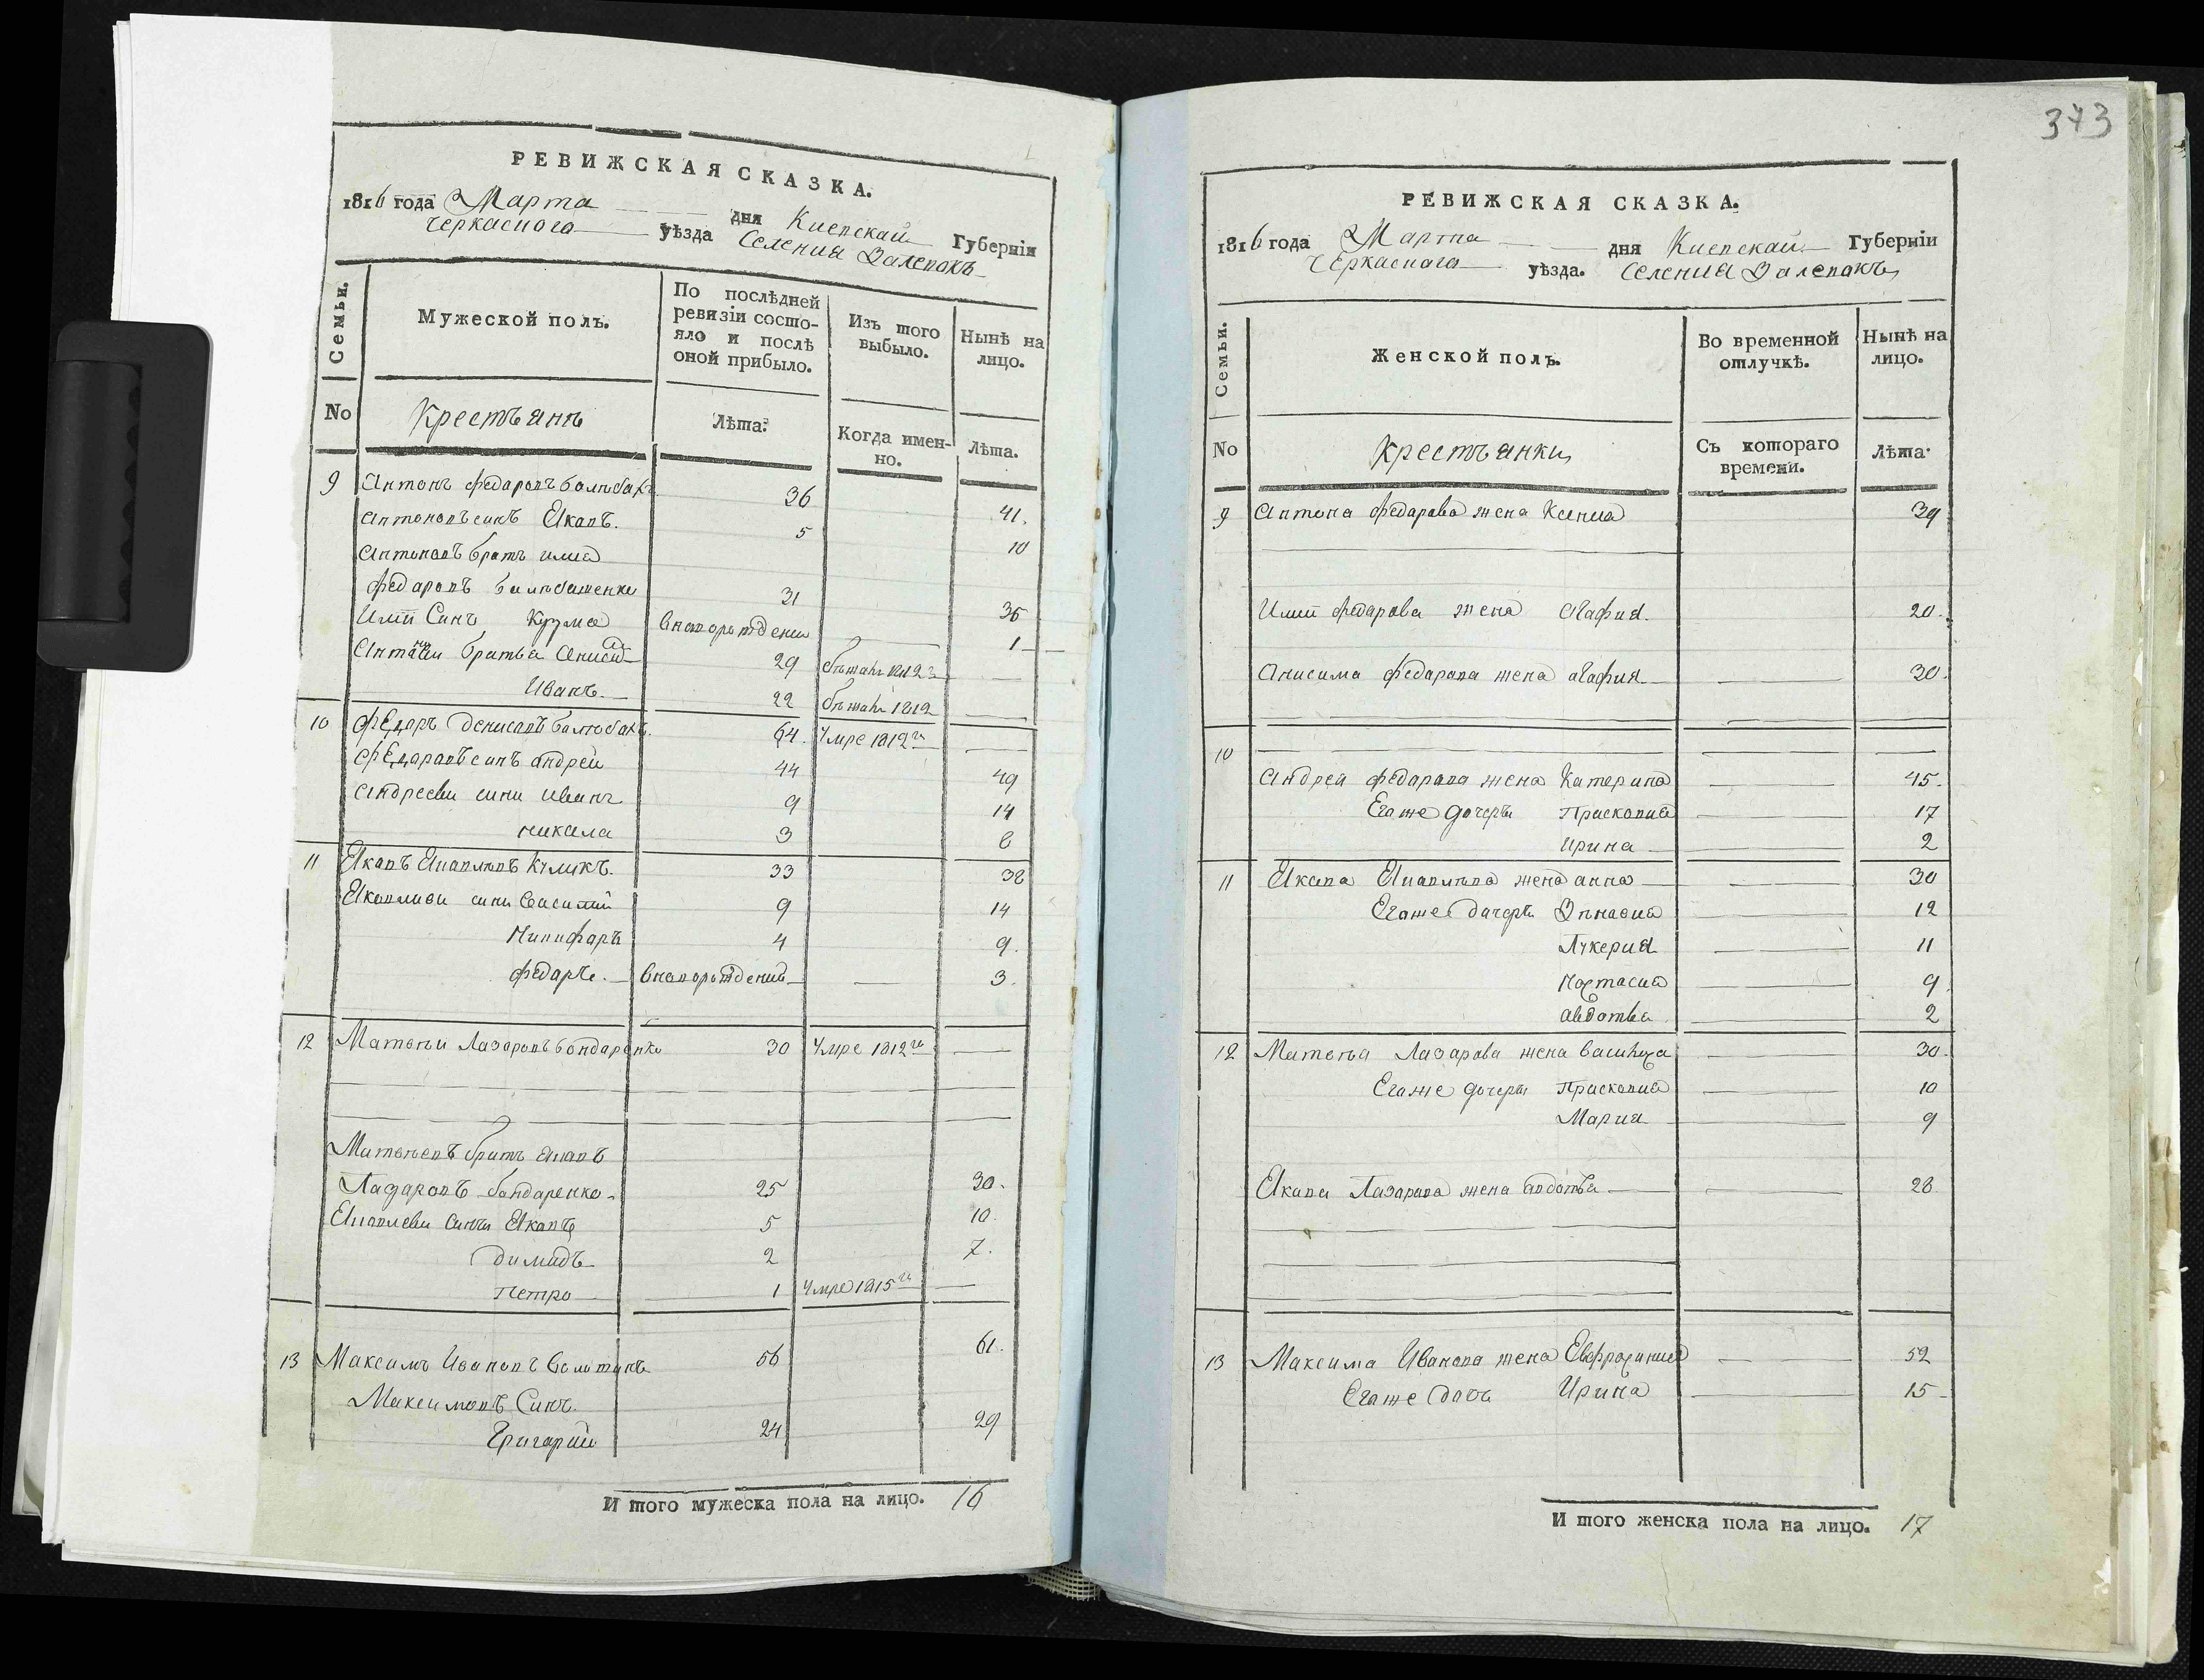 РЕВИЖСКАЯ СКАЗКА.
1816 года Марта дня Киевской Губерніи
Черкаского уѣзда Селения Валевакъ
Семьи.
Мужеской полъ.
По послѣдней ревизіи состо-
яло и послѣ оной прибыло.
Изъ того выбыло.
Нынѣ на лицо.
No Крестъяне Лѣта. Когда имен-
но. Лѣта.
9 Антонъ Федаровъ 36 41.
Антоновъ синъ Яковъ. 5 10
Антоновъ братъ Илиа
Федаровъ 31 36
Илии Синъ Кузма вновorожденни 1
братья Анисим 29 бѣжалъ 1812
Иванъ. 22 бѣжалъ 1812
10 Федоръ Денисовъ 64. Умре 1812го
Федаровъ синъ Андрей 44 49
Андрееви сини Иванъ 9 14
Никола 3 8
11 Яковъ Яковлевъ Куликъ. 33 38
Яковливи сини Василий 9 14
Никифаръ 4 9.
Федаръ. вноворожденив 3.
12 Матвѣи Лазаровъ бондаренко 30 Умре 1812го
Матвѣевъ братъ Яковъ
Лазаровъ бондаренко. 25 30.
Яковлеви Сини Яковъ 5 10.
Димидъ 2 7.
Петро 1 Умре 1815го
13 Максимъ Ивановъ 56 61.
Максимовъ Синъ.
Григарий 24 29
И того мужеска пола на лицо. 16
373
РЕВИЖСКАЯ СКАЗКА.
1816 года Марта дня Киевской Губерніи
Черкаского уѣзда. Селения Валевакъ
Семьи.
Женской полъ.
Во временной отлучкѣ.
Нынѣ на лицо.
No Крестъянки Съ котораго
времени. Лѣта.
9 Антона Федарова жена Ксения 39
Илии Федарова жена Агафия. 20.
Анисима Федарава жена агафия 30.
10
Андрея Федарава жена Катерина 45.
Егоже дочери Прасковия 17
Ирина 2
11 Якова Яковлева жена анна 30
Егоже дочери 12
Лукерия 11
Настасия 9
Авдотья 2
12 Матвѣя Лазарова жена Василиса 30.
Егоже дочери Прасковия 10
Мария 9
Якова Лазарава жена авдотья 28.
13 Максима Иванова жена Евфросиния 52
Егоже дочь Ирина 15
И того женска пола на лицо. 17